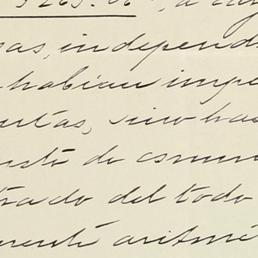 sas, independ
habian impe
utas, sino has
esto de comun
trado del todo
mente aritmé